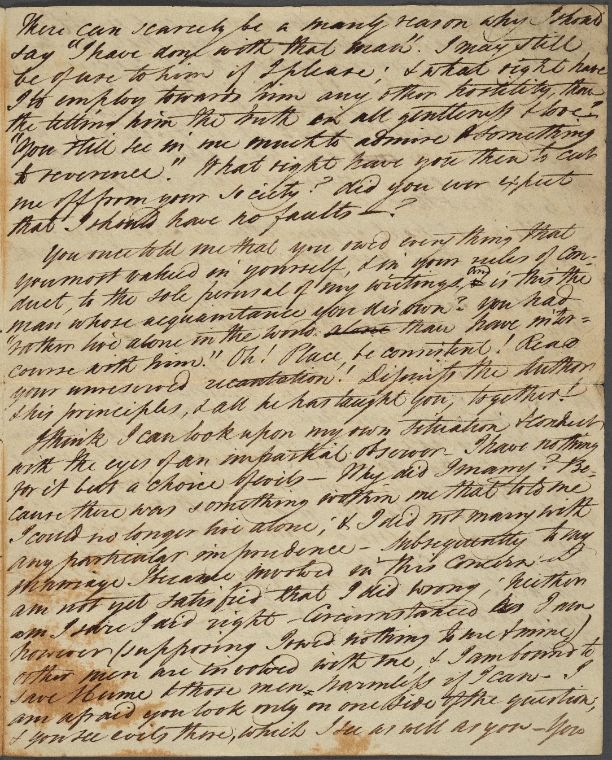 There can scarcely be a manly reason why I should
say "I have done with that man". I may still
be of use to him if I please; & what right have
I to employ towards him any other hostility, than
the telling him the truth in all gentleness & love?
"You still see in me much to admire & something
to reverence." What right have you then to cut
me off from your society? Did you ever expect
that I should have no faults —?
You once told me that you owed everything that
you most valued in yourself, & in your rules of con-
duct, to the sole perusal of my writings, and is this the
man whose acquaintance you disown? You had
"rather live alone in the world alone than have inter-
course with him." Oh! Place, be consistent! Read
your unreserved recantation! Dismiss the author
& his principles, & all he has taught you, together!
I think I can look upon my own situation & conduct
with the eyes of an impartial observer. I have nothing
for it but a choice of evils — Why did I marry? Be-
cause there was something within me that told me
I could no longer live alone; & I did not marry with
any particular imprudence — Subsequently to my
marriage I became involved in this concern — I
am not yet satisfied that I did wrong, neither
am I sure I did right — Circumstanced as I am
however (supposing I owed nothing to me & mine)
other men are involved with me, & I am bound to
save Hume & those men harmless if I can — I
am afraid you look only on one side of the question;
& you see evils there, which I see as well as you — You